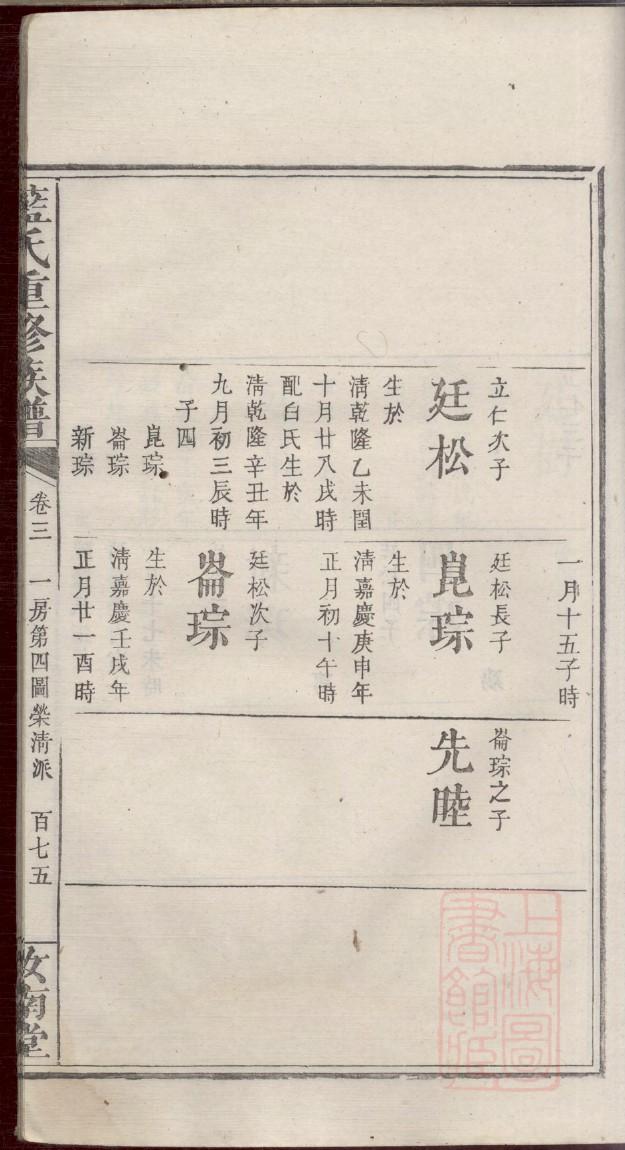 立仁次子
廷松
生於
淸乾隆乙未閏
十月廿八戌時
配白氏生於
淸乾隆辛丑年
九月初三辰時
子四
崑琮
崙琮
新琮
一月十五子時
廷松長子
崑琮
生於
淸嘉慶庚申年
正月初十午時
廷松次子
崙琮
生於
淸嘉慶壬戌年
正月廿一酉時
崙琮之子
先睦
藍氏重修族譜
卷三
一房第四圖榮淸派
百七五
汝南堂
上海圖
書館藏